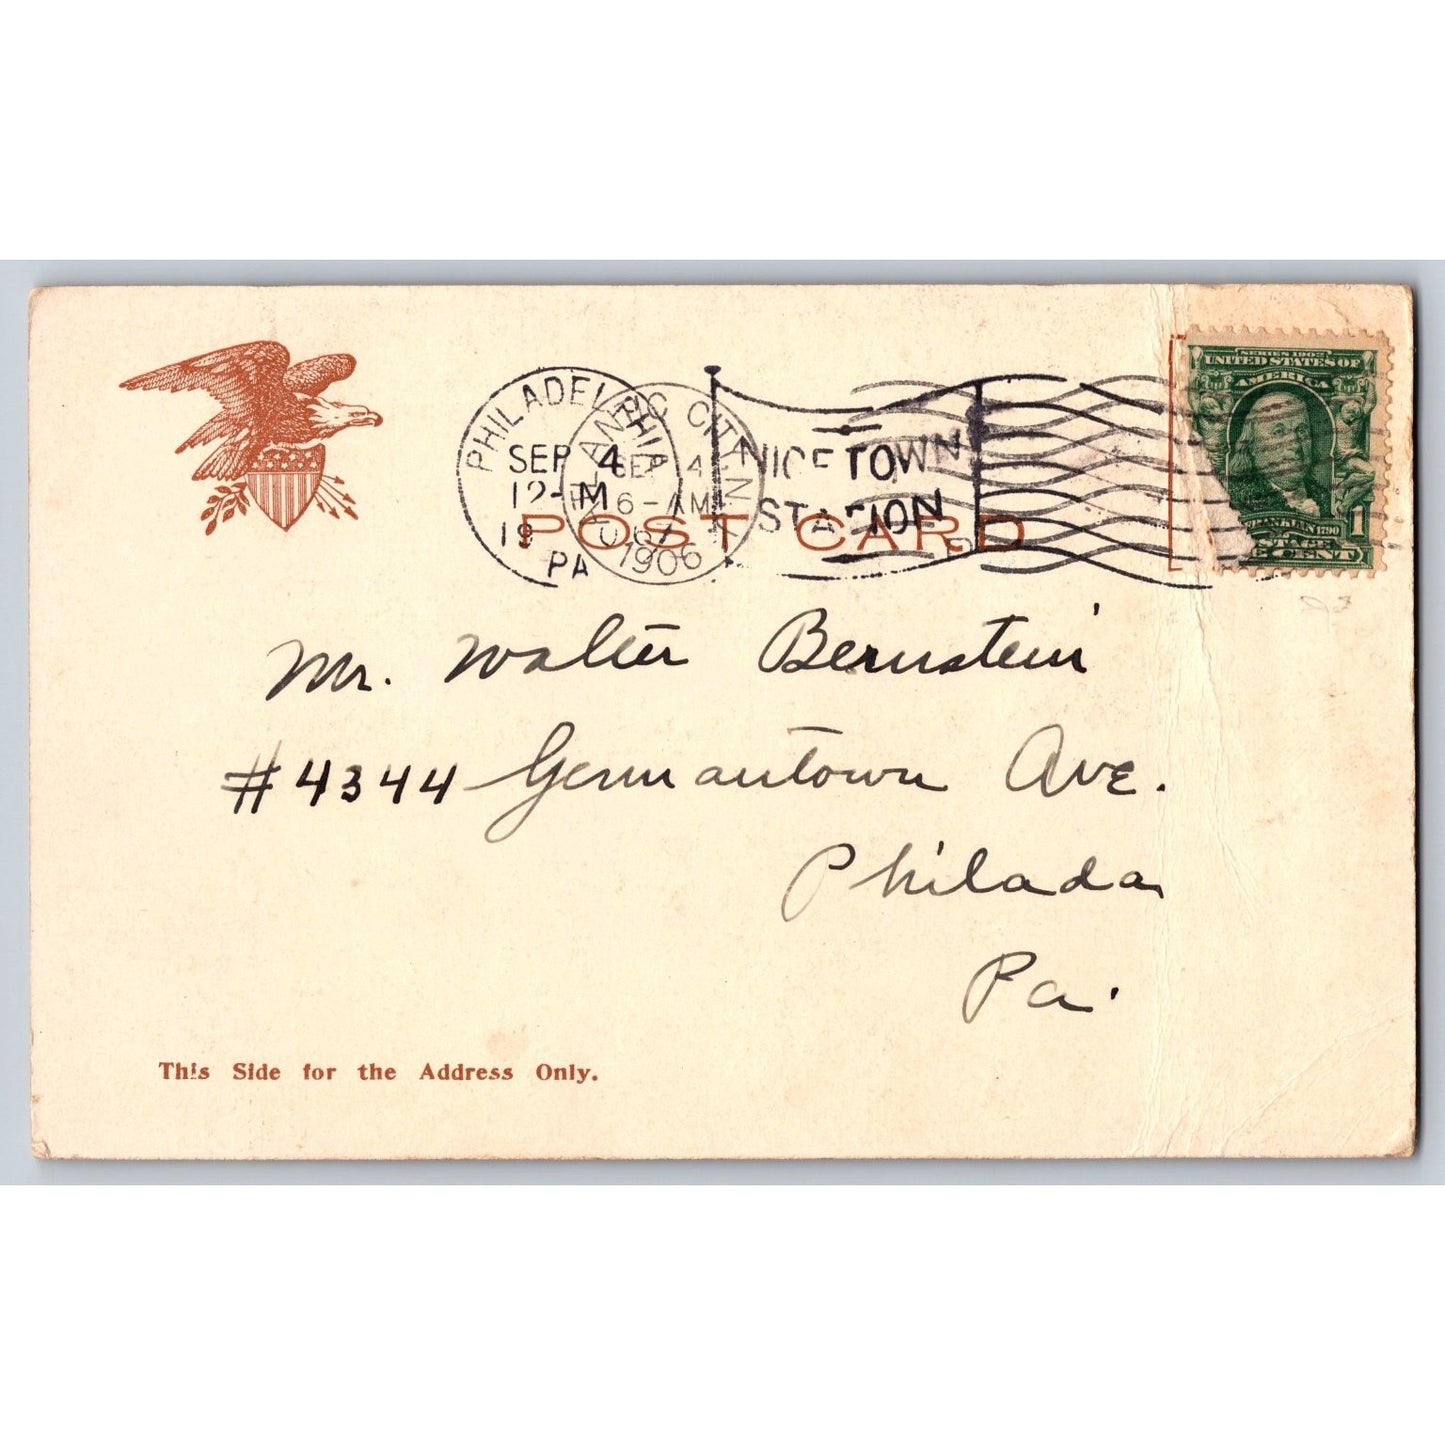 PHILADELPHIA
SEP 4
12-M
19
PA
ATLANTIC CITY, N.J.
SEP 4
6-AM
1906
NICETOWN
STATION
POST CARD
SERIES 1902
UNITED STATES OF
AMERICA
FRANKLIN 1790
1
CENT
Mr. Walter Bernstein
#4344 Germantown Ave.
Philada
Pa.
This Side for the Address Only.